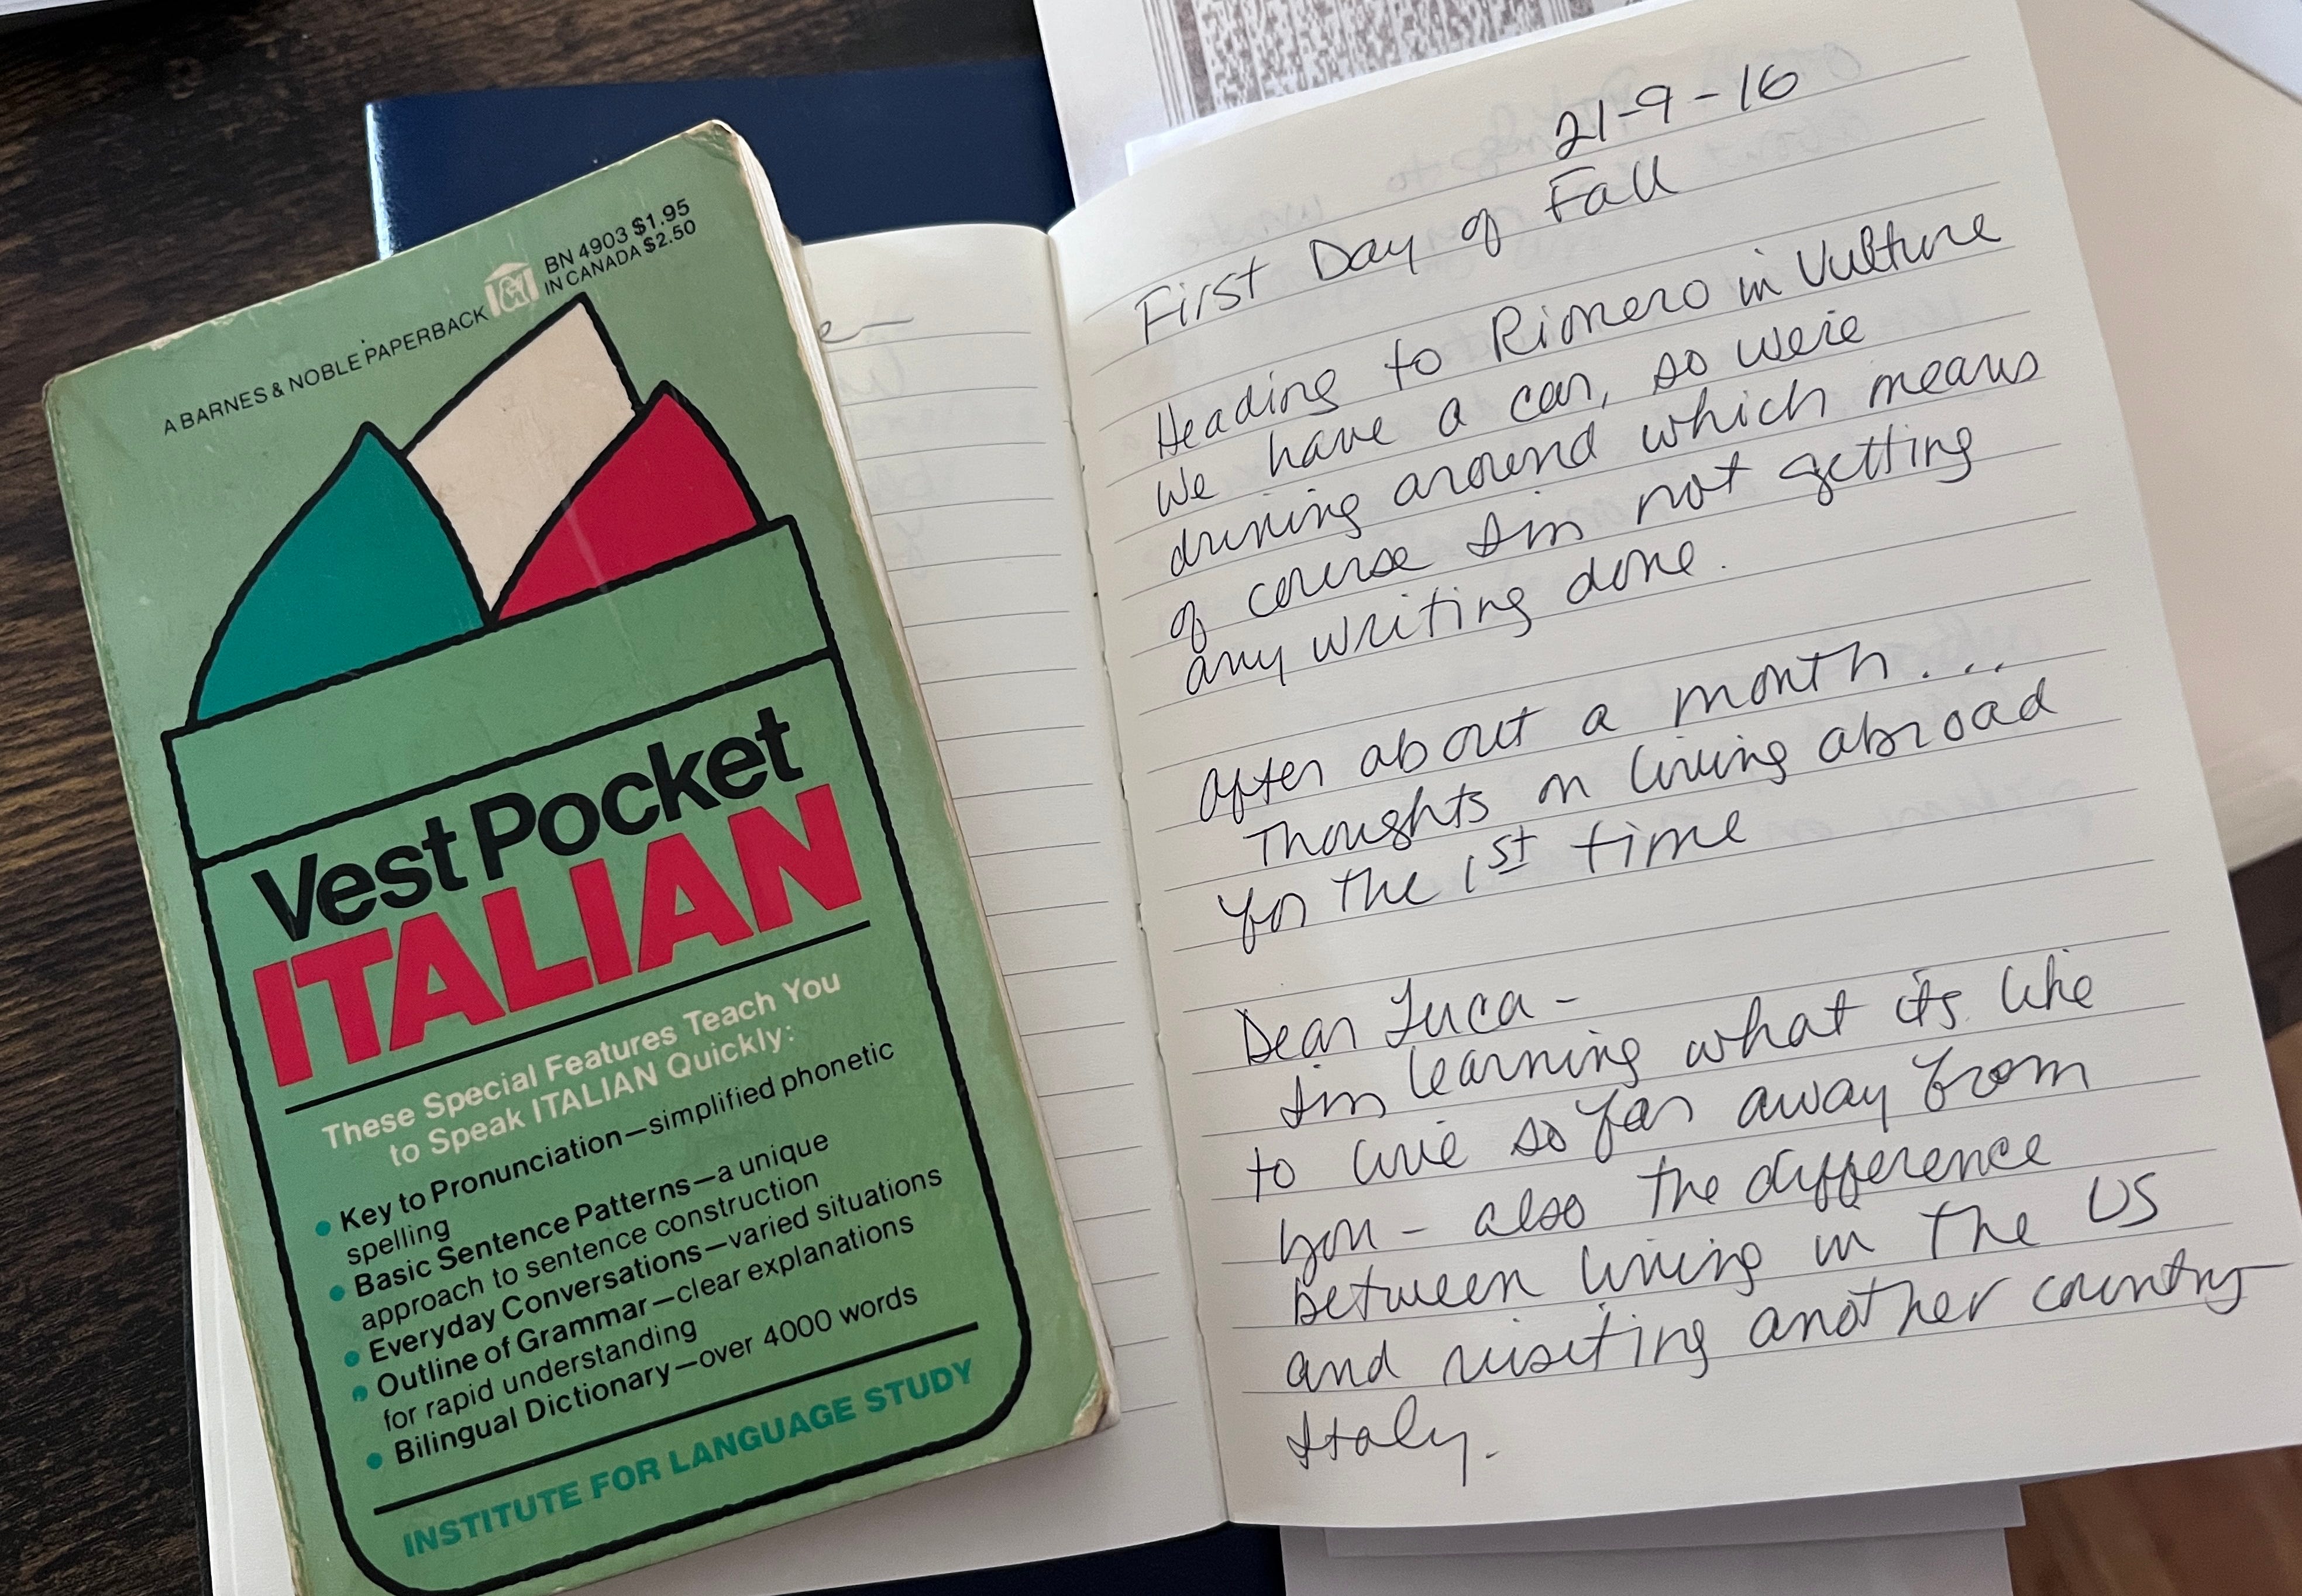 A BARNES & NOBLE PAPERBACK
BN 4903 $1.95
IN CANADA $2.50
Vest Pocket
ITALIAN
These Special Features Teach You
to Speak ITALIAN Quickly:
• Key to Pronunciation—simplified phonetic
spelling
• Basic Sentence Patterns—a unique
approach to sentence construction
• Everyday Conversations—varied situations
• Outline of Grammar—clear explanations
for rapid understanding
• Bilingual Dictionary—over 4000 words
INSTITUTE FOR LANGUAGE STUDY
21-9-16
First Day of Fall
Heading to Rionero in Vulture
We have a car, so were
driving around which means
of course I'm not getting
any writing done.
After about a month...
Thoughts on living abroad
for the 1st time
Dear Luca -
I'm learning what its like
to live so far away from
you - also the difference
between living in the US
and visiting another country
Italy.